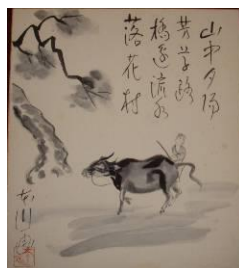 山中夕陽
芳草路
橋邊流水
落花村